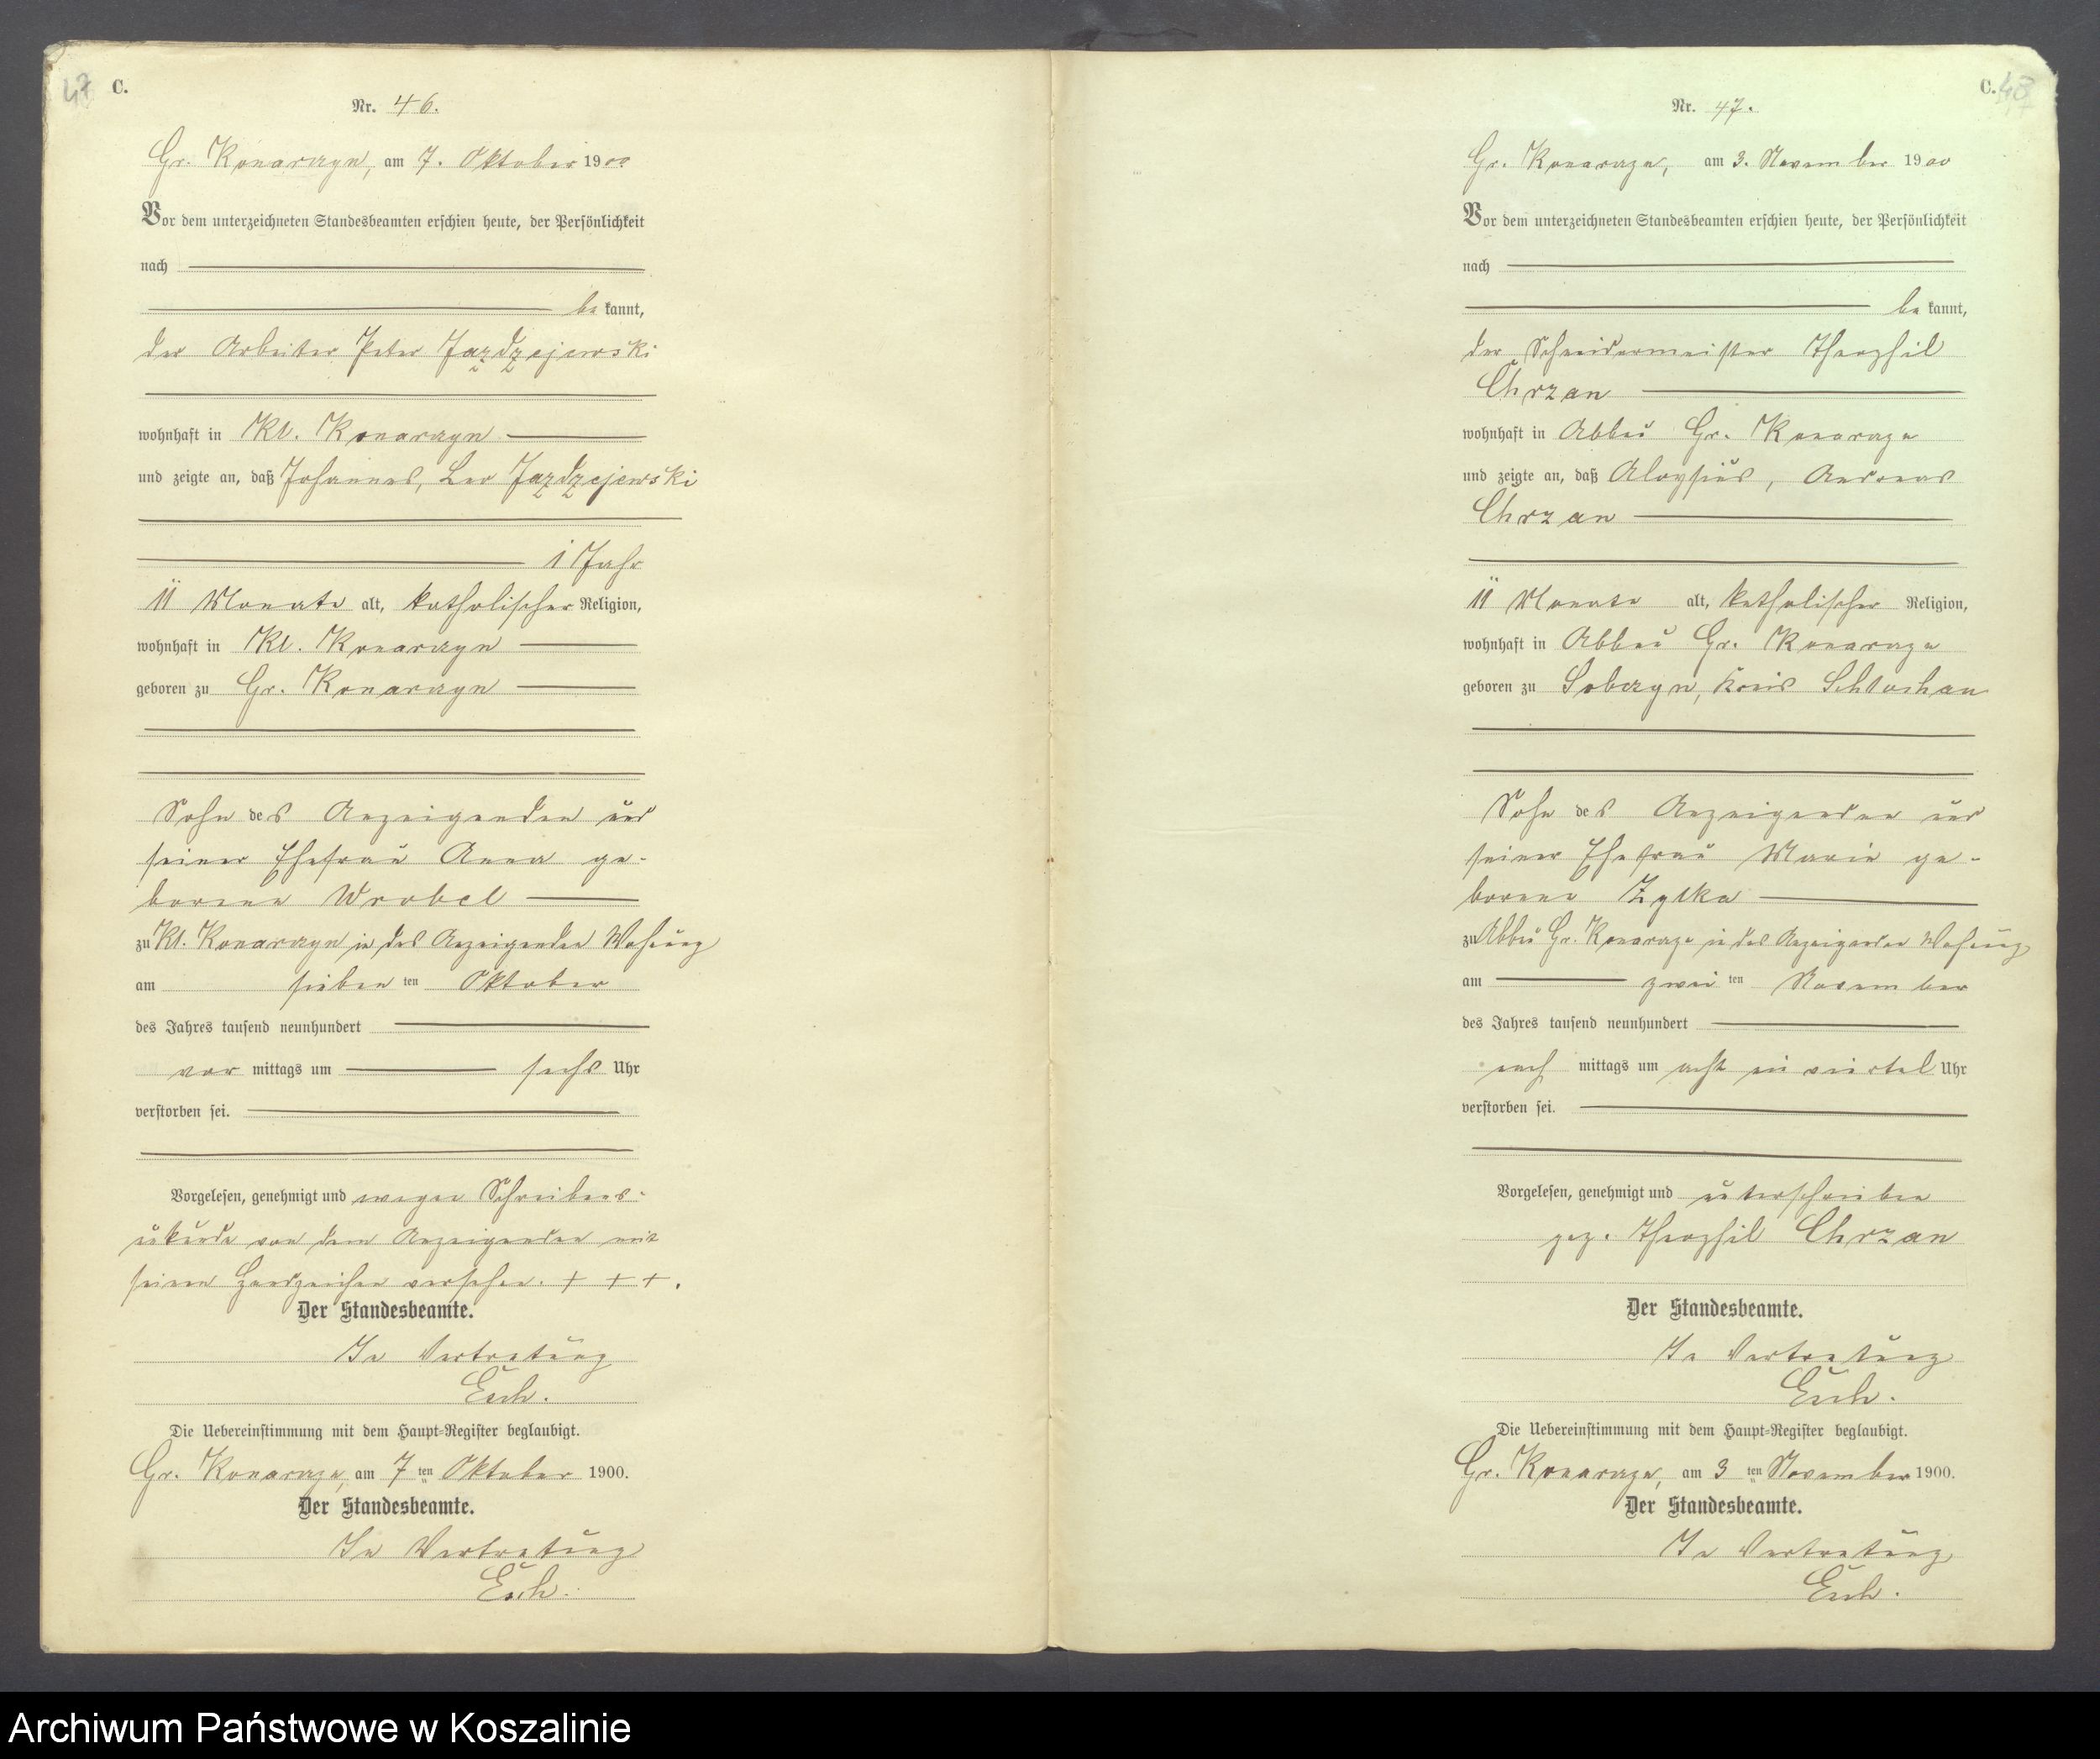 47 C.
Nr. 46.
Gr. Konarczyn, am 7. Oktober 1900
Vor dem unterzeichneten Standesbeamten erschien heute, der Persönlichkeit
nach
be kannt,
der Arbeiter Peter Jazdzejewski
wohnhaft in Kl. Konarczyn
und zeigte an, daß Johannes, Leo Jazdzejewski
1 Jahr
11 Monate alt, katholischer Religion,
wohnhaft in Kl. Konarczyn
geboren zu Gr. Konarczyn
Sohn des Anzeigenden und
seiner Ehefrau Anna ge-
borene Wrobel
zu Kl. Konarczyn in des Anzeigenden Wohnung
am sieben ten Oktober
des Jahres tausend neunhundert
vor mittags um sechs Uhr
verstorben sei.
Vorgelesen, genehmigt und wegen Schreibens-
unkunde von dem Anzeigenden mit
seinem Handzeichen versehen. + + +.
Der Standesbeamte.
In Vertretung
Esch.
Die Uebereinstimmung mit dem Haupt-Register beglaubigt.
Gr. Konarczyn, am 7 ten Oktober 1900.
Der Standesbeamte.
In Vertretung
Esch.
C. 48
Nr. 47.
Gr. Konarczyn, am 3. November 1900
Vor dem unterzeichneten Standesbeamten erschien heute, der Persönlichkeit
nach
be kannt,
der Schneidermeister Theophil
Chrzan
wohnhaft in Abbau Gr. Konarczyn
und zeigte an, daß Aloysius, Andreas
Chrzan
11 Monate alt, katholischer Religion,
wohnhaft in Abbau Gr. Konarczyn
geboren zu Sobczyn, Kreis Schlochau
Sohn des Anzeigenden und
seiner Ehefrau Marie ge-
borene Zytka
zu Abbau Gr. Konarczyn in des Anzeigenden Wohnung
am zwei ten November
des Jahres tausend neunhundert
nach mittags um acht ein viertel Uhr
verstorben sei.
Vorgelesen, genehmigt und unterschrieben
gez. Theophil Chrzan
Der Standesbeamte.
In Vertretung
Esch.
Die Uebereinstimmung mit dem Haupt-Register beglaubigt.
Gr. Konarczyn, am 3 ten November 1900.
Der Standesbeamte.
In Vertretung
Esch.
Archiwum Państwowe w Koszalinie